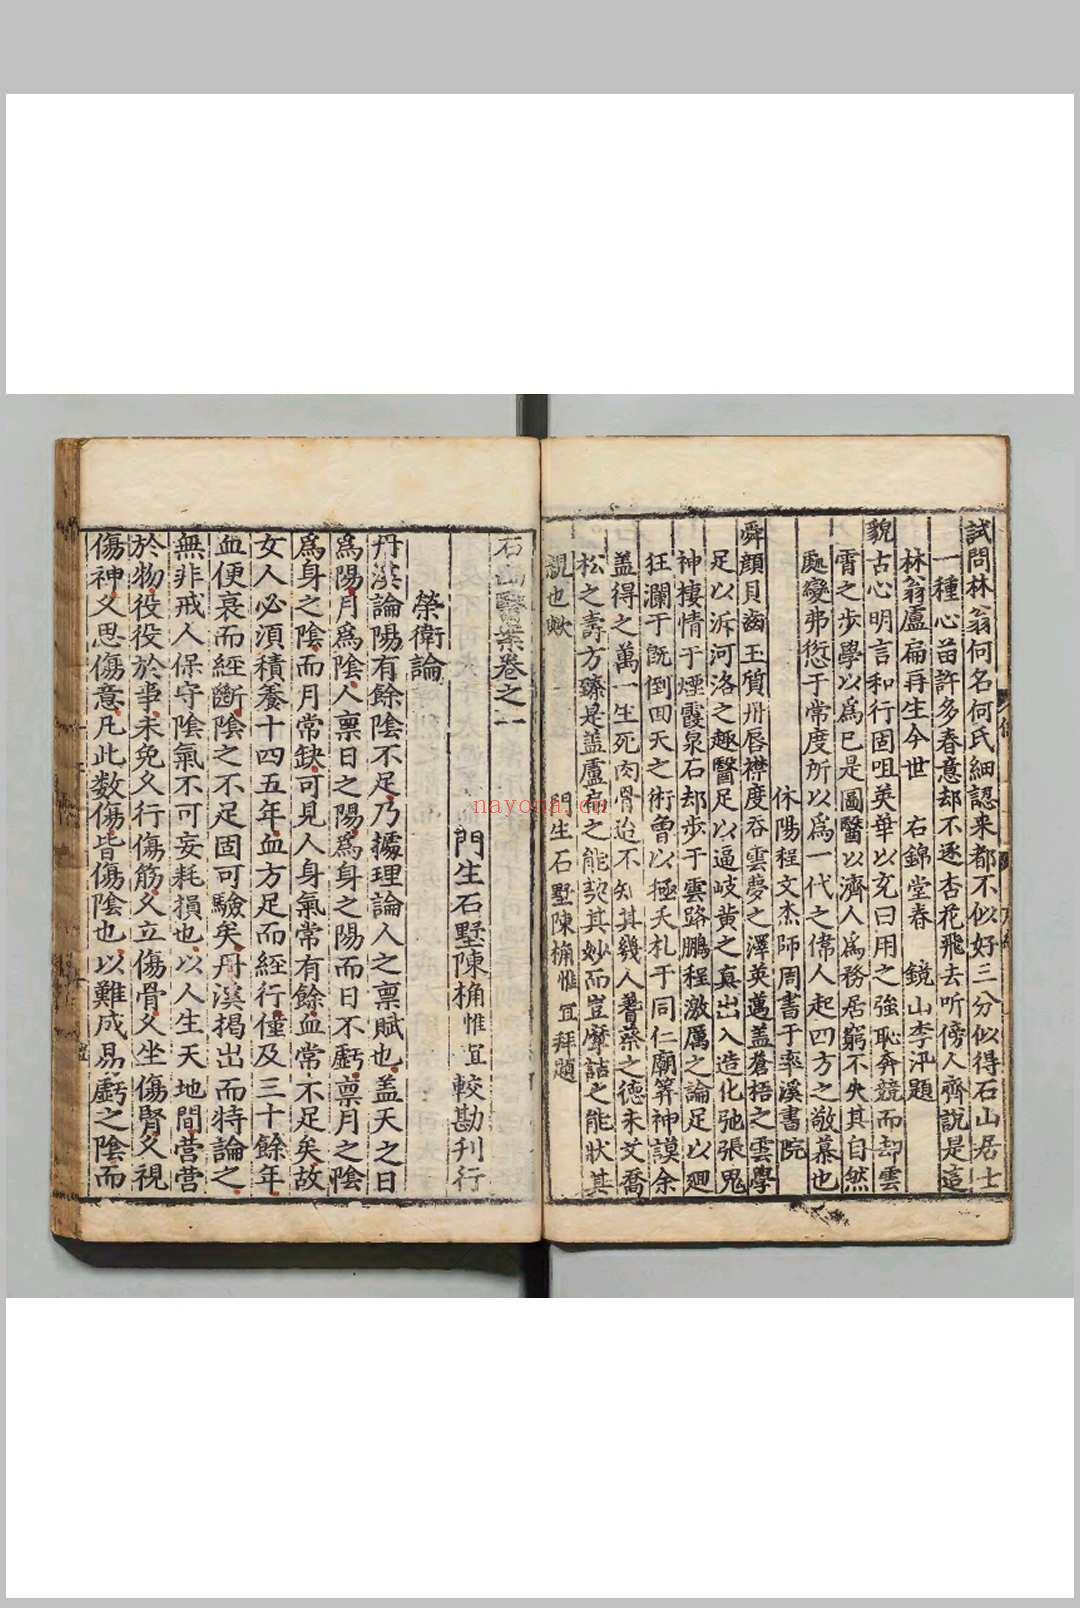 試問林翁何名何氏細認来都不似好三分似得石山居士
一種心苗許多春意却不逐杏花飛去听傍人齊說是這
林翁盧扁再生今世　右錦堂春　鏡山李汛題
貌古心明言和行固咀英華以充日用之強恥奔競而却雲
霄之步學以爲已是圖醫以濟人爲務居窮不失其自然
處變弗愆于常度所以爲一代之偉人起四方之敬慕也
休陽程文杰師周書于率溪書院
舜顔貝齒玉質丹唇襟度吞雲夢之澤英邁盖蒼梧之雲學
足以泝河洛之趣醫足以逼岐黄之真出入造化弛張鬼
神棲情于煙霞泉石却步于雲路鵬程激厲之論足以廻
狂瀾于既倒囬天之術曽以極夭札于同仁廟筭神謨余
盖得之萬一生死肉骨迨不知其幾人蓍蔡之德未艾喬
松之壽方臻是盖盧扁之能契其妙而豈摩詰之能狀其
門生石墅陳桷惟宜拜題
石山醫案卷之一
門生石墅陳桷惟宜較勘刋行
榮衛論
丹溪論陽有餘陰不足乃據理論人之禀賦也盖天之日
爲陽月爲陰人禀日之陽爲身之陽而日不虧禀月之陰
爲身之陰而月常缺可見人身氣常有餘血常不足矣故
女人必須積養十四五年血方足而經行僅及三十餘年
血便衰而經斷陰之不足固可驗矣丹溪揭出而特論之
無非戒人保守陰氣不可妄耗損也以人生天地間营营
於物役役於事未免久行傷筋久立傷骨久坐傷腎久視
傷神久思傷意凡此数傷皆傷陰也以難成易虧之陰而
nayona.cn